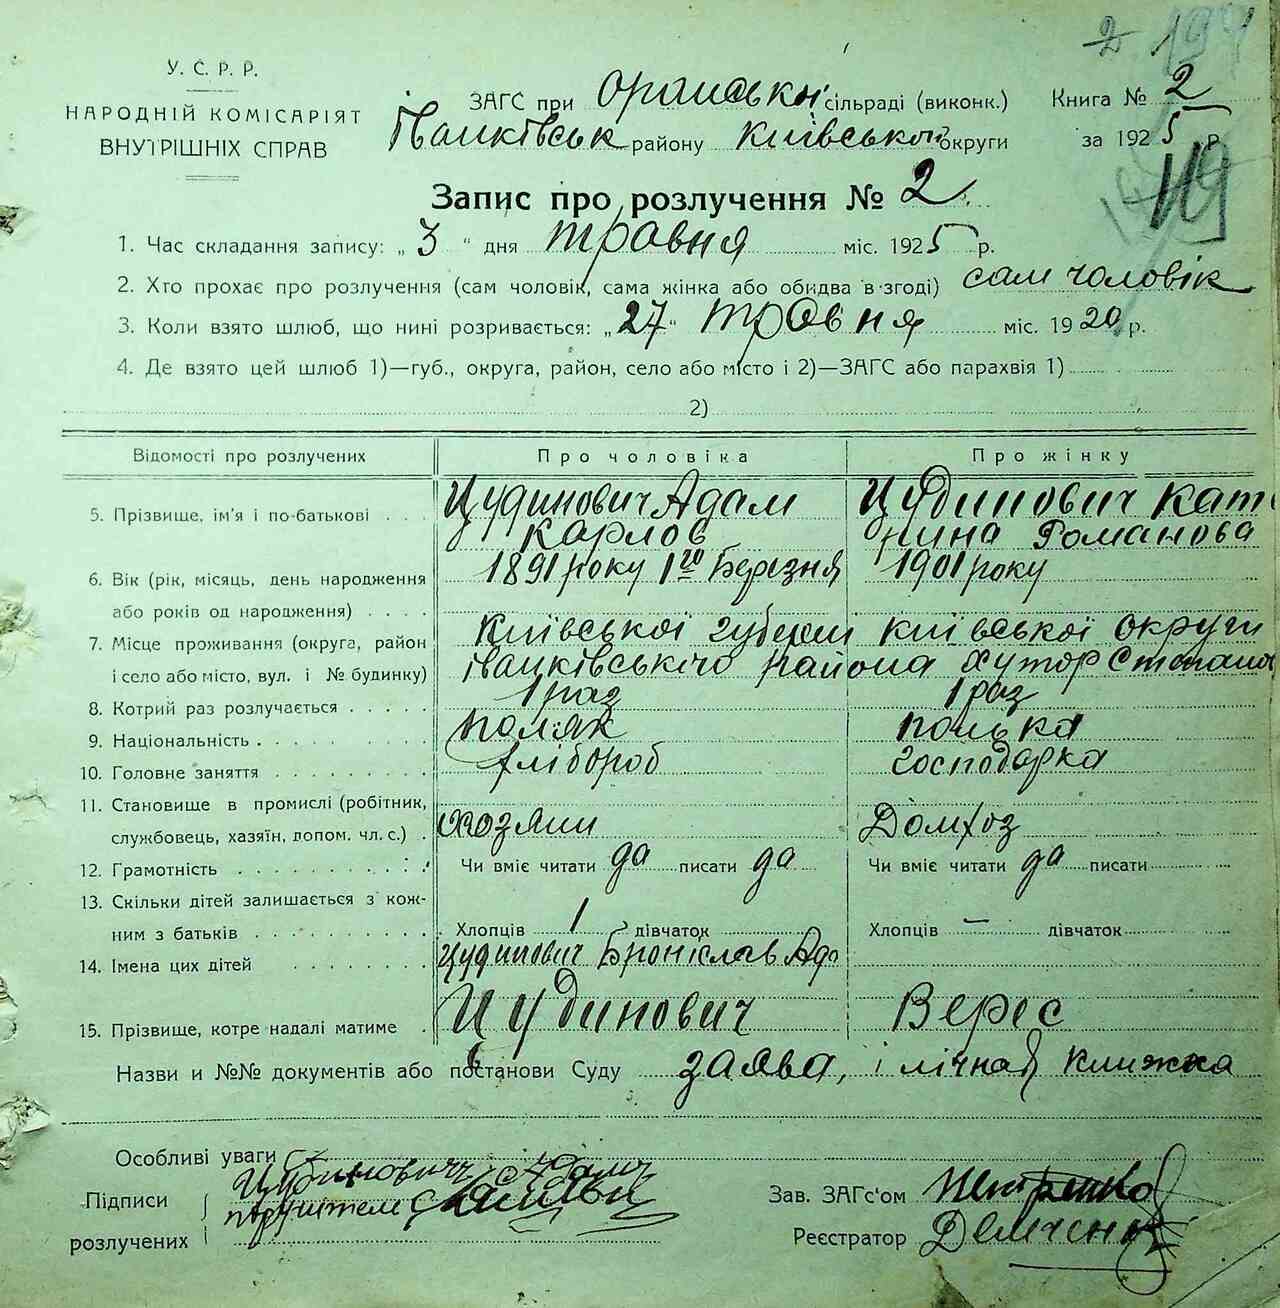 У. С. Р. Р.
НАРОДНІЙ КОМІСАРІЯТ
ВНУТРІШНІХ СПРАВ
ЗАГС при Оранській сільраді (виконк.)
Іванківськ району Київської округи
Книга № 2
за 1925 р.
119
Запис про розлучення № 2
1. Час складання запису: „ 3 “ дня травня міс. 1925 р.
2. Хто прохає про розлучення (сам чоловік, сама жінка або обидва в згоді) сам чоловік
3. Коли взято шлюб, що нині розривається: „27“ травня міс. 1920 р.
4. Де взято цей шлюб 1)—губ., округа, район, село або місто і 2)—ЗАГС або парахвія 1)
2)
Відомості про розлучених Про чоловіка Про жінку
5. Прізвище, ім'я і по-батькові Цудинович Адам Карлов Цудинович Катирина Романова
6. Вік (рік, місяць, день народження 1891 року 1го Березня 1901 року
або років од народження)
7. Місце проживання (округа, район Київської губерні Київської округи
і село або місто, вул. і № будинку) Іванківського района хутор
8. Котрий раз розлучається 1 раз 1 раз
9. Національність поляк полька
10. Головне заняття хлібороб господарка
11. Становище в промислі (робітник,
службовець, хазяїн, допом. чл. с.) хозяин Домхоз
12. Грамотність Чи вміє читати да писати да Чи вміє читати да писати
13. Скільки дітей залишається з кож-
ним з батьків Хлопців 1 дівчаток Хлопців — дівчаток
14. Імена цих дітей Цудинович Броніслав Ада
15. Прізвище, котре надалі матиме Цудинович Верес
Назви и №№ документів або постанови Суду заява, і лічная книжка
Особливі уваги
Підписи Цудинович Адам
розлучених
Зав. ЗАГс'ом
Реєстратор Демченко